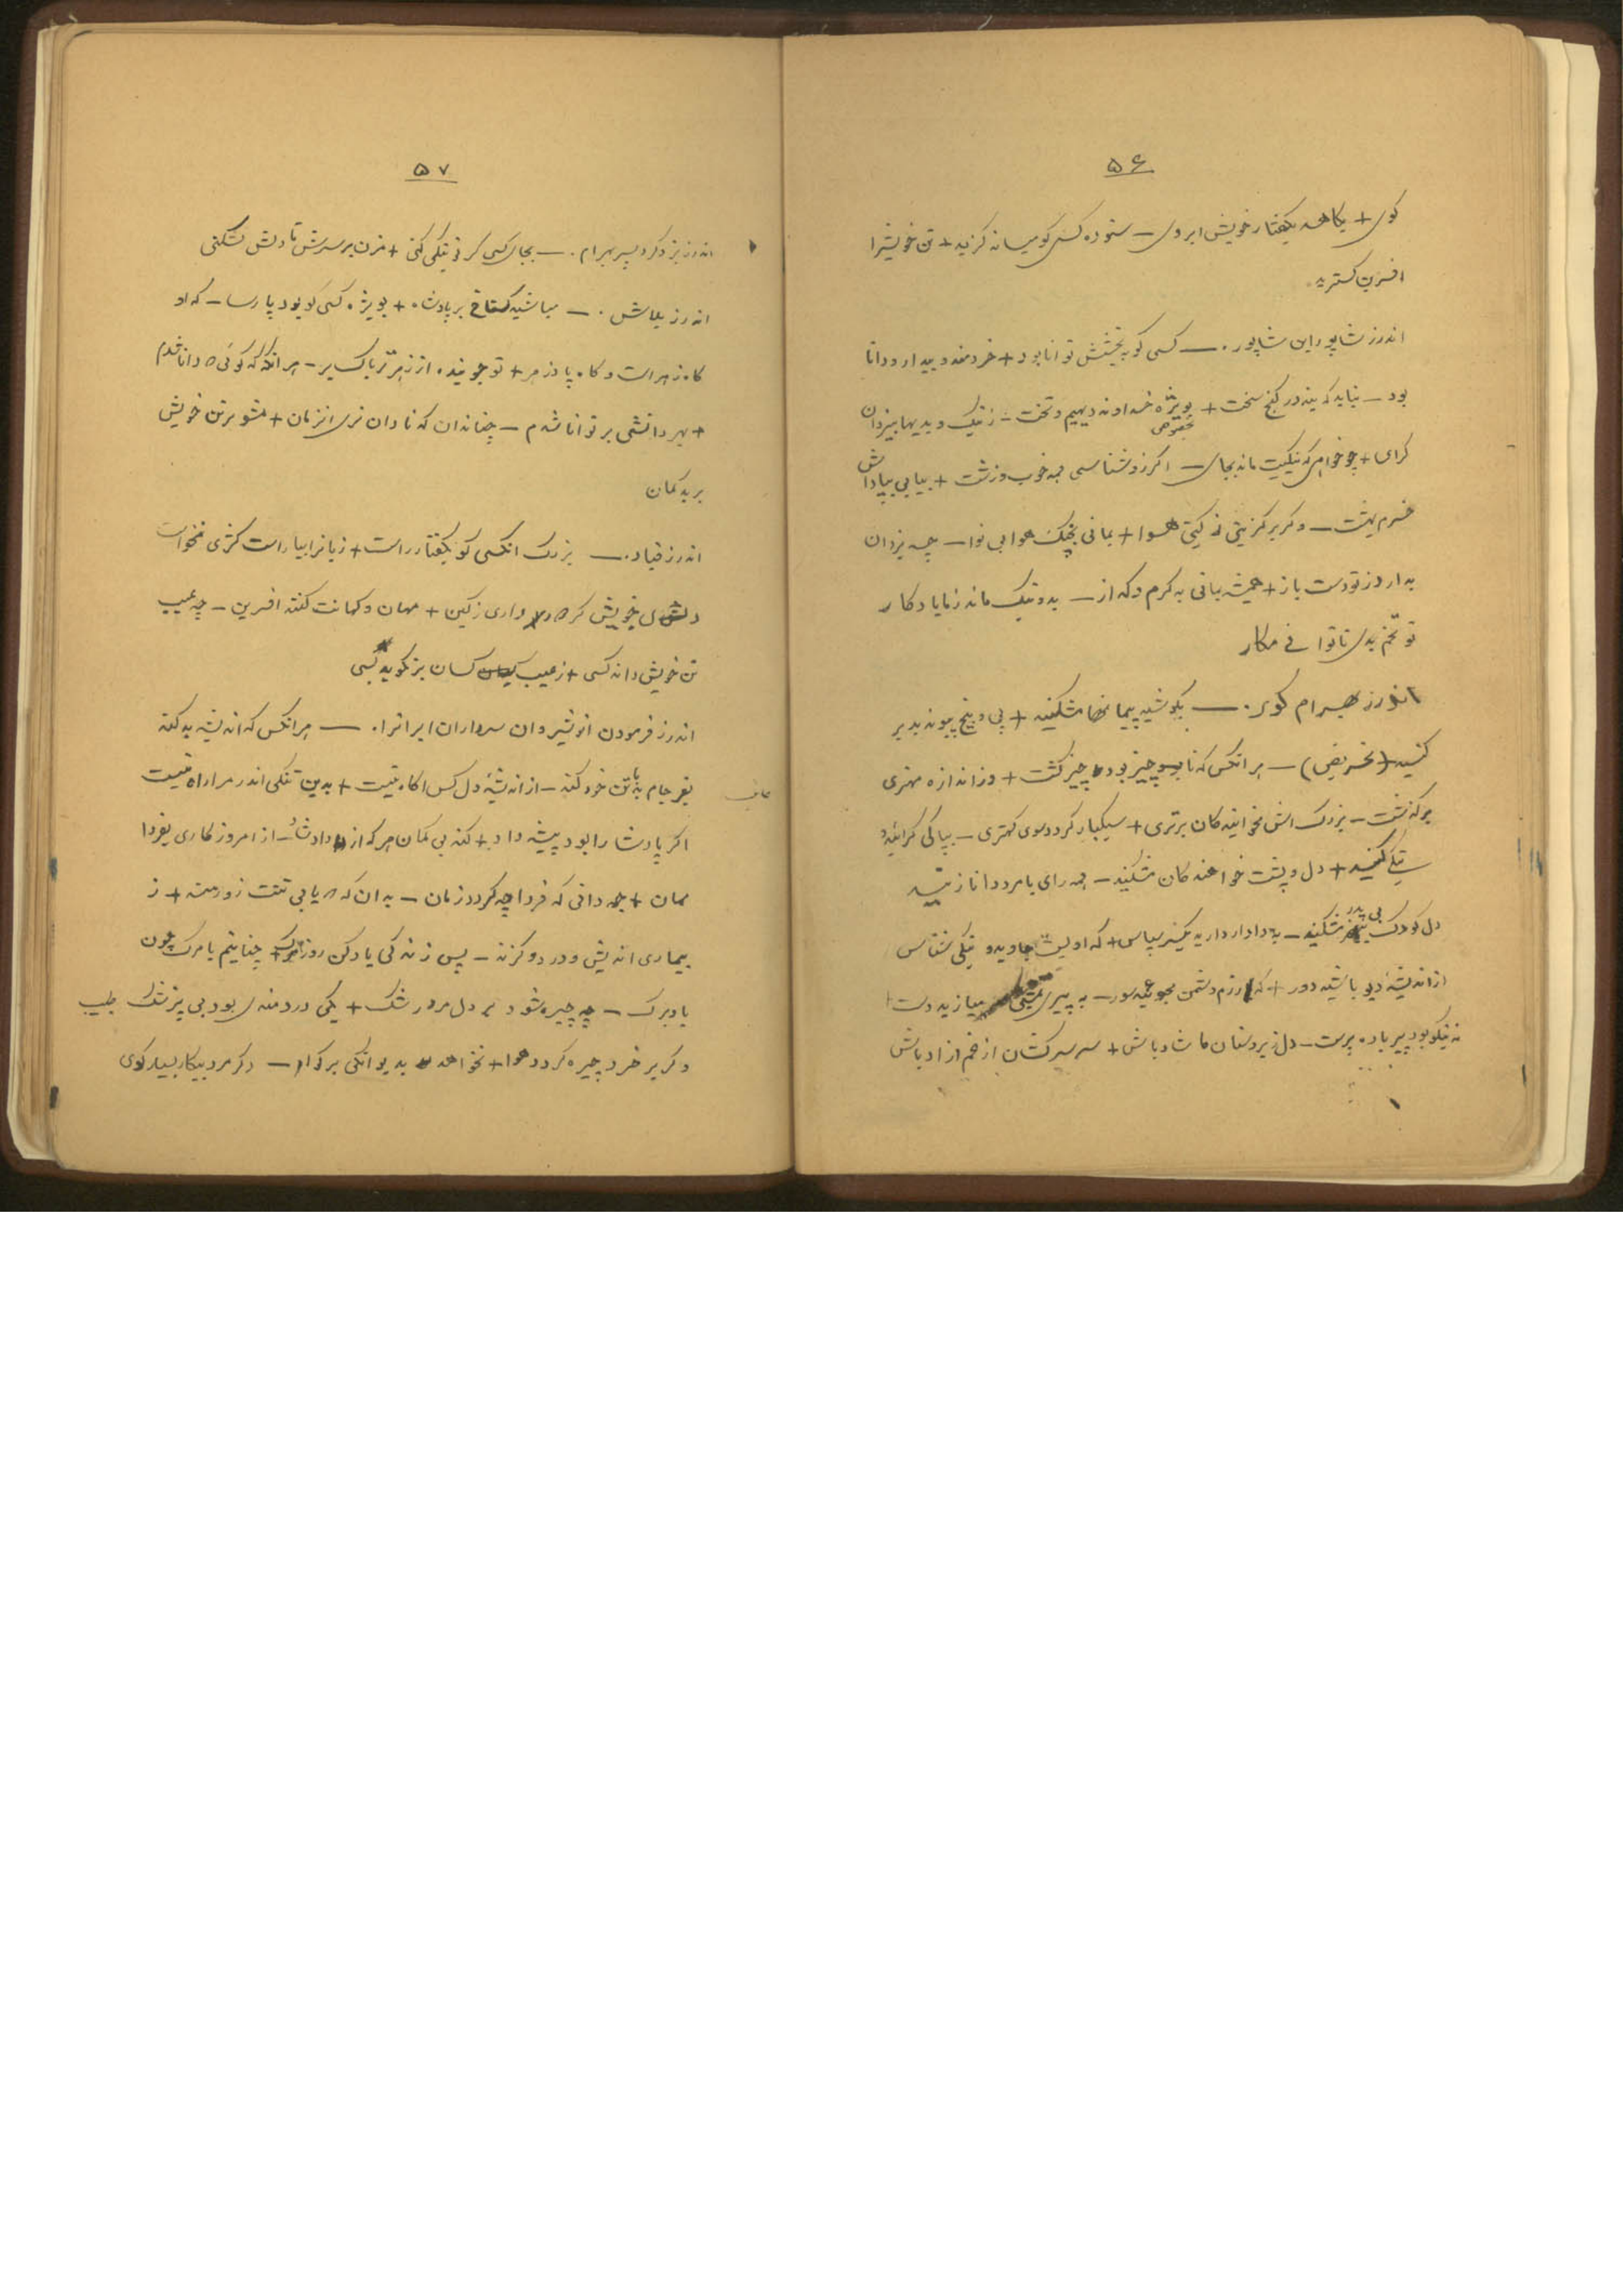 ۵۶
کوی + بکاهد بگفتار خویش ابروی — ستوده کسی کو میانه گزید + تن خویشرا
افرین گسترید.
اندرز شاپور ابن شاپور. — کسی کو ببخشش توانا بود + خردمند و بیدار و دانا
بود — نباید که بندد در گنج سخت + بویژه خداوند دیهیم و تخت — ز نیک و بدیها بیزدان
بخصوص
گرای + چو خواهی که نیکیت ماند بجای — اگر زو شناسی همه خوب و زشت + بیابی بپاداش
خرم بهشت — وگر برگزینی ز گیتی هوا + بمانی بچنگ هوا بی نوا — چه یزدان
بدارد ز تو دست باز + همیشه بمانی به گرم و گداز — بد و نیک ماند ز ما یادگار
تو تخم بدی تا توانی مکار
اندرز بهرام گور. — بکوشید پیمانها مشکنید + پی و بیخ پیوند بد بر
کنید (تحریض) — هر انکس که نابوده چیز بود چیز گشت + وز اندازه مهتری
برگذشت — بزرگ انش مخوانید کان برتری + سبکبار گردد سوی کهتری — بپاکی گرائید و
نیکی کنید + دل و پشت خواهندگان مشکنید — همه رای با مرد دانا زنید
دل کودک بی پدر مشکنید — به دادار دارید یکسر سپاس + که اویست جاوید و نیکی شناس
از اندیشه دیو باشید دور + گه رزم دشمن مجوئید سور — به پیری بمستی میازید دست +
نه نیکو بود پیر باده پرست — دل زیردستان ما شاد باش + سر سرکشان از غم ازاد باش
۵۷
اندرز یزدگرد پسر بهرام. — بجای کسی گر تو نیکی کنی + مزن بر سرش تا دلش نشکنی
اندرز بلاش. — مباشید گستاخ بر پادشاه + بویژه کسی کو بود پارسا — که او
گاه زهر است و گاه پادزهر + تو جوینده از زهر تریاک بر — هر انگه که گوئی که دانا شدم
+ بهر دانشی بر توانا شدم — چنان دان که نادان تری انزمان + مشو برتن خویش
بر بدگمان
اندرز قباد. — بزرگ انکسی کو بگفتار راست + زبانرا بیاراست کژی نخواست
دل خویش گر دور داری ز کین + مهان و کهانت کنند افرین — چه عیب
تن خویش داند کسی + ز عیب کسان بر نگوید بسی
اندرز فرمودن انوشیروان سرداران ایرانرا. — هر انکس که اندیشه بد کند
بفرجام بد با تن خود کند — از اندیشه دل کس اگاه نیست + بدین تنگی اندر مرا راه نیست
اگر پادشا را بود پیشه داد + کند بی گمان هر کس از داد شاد — از امروز کاری بفردا
ممان + چه دانی که فردا چه گردد زمان — بدان گه که یابی تنت زورمند + ز
بیماری اندیش و درد و گزند — پس زندگی یاد کن روز مرگ + چنانیم با مرگ چون
باد برگ — چو چیره شود بر دل مرد رشک + یکی دردمندی بود بی پزشک طبیب
وگر بر خرد چیره گردد هوا + نخواهد بدیوانگی بر گوا — دگر مرد بیکار بسیار گوی